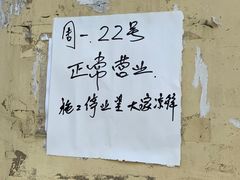 周一.22号
正常营业.
施工停业望大家凉解